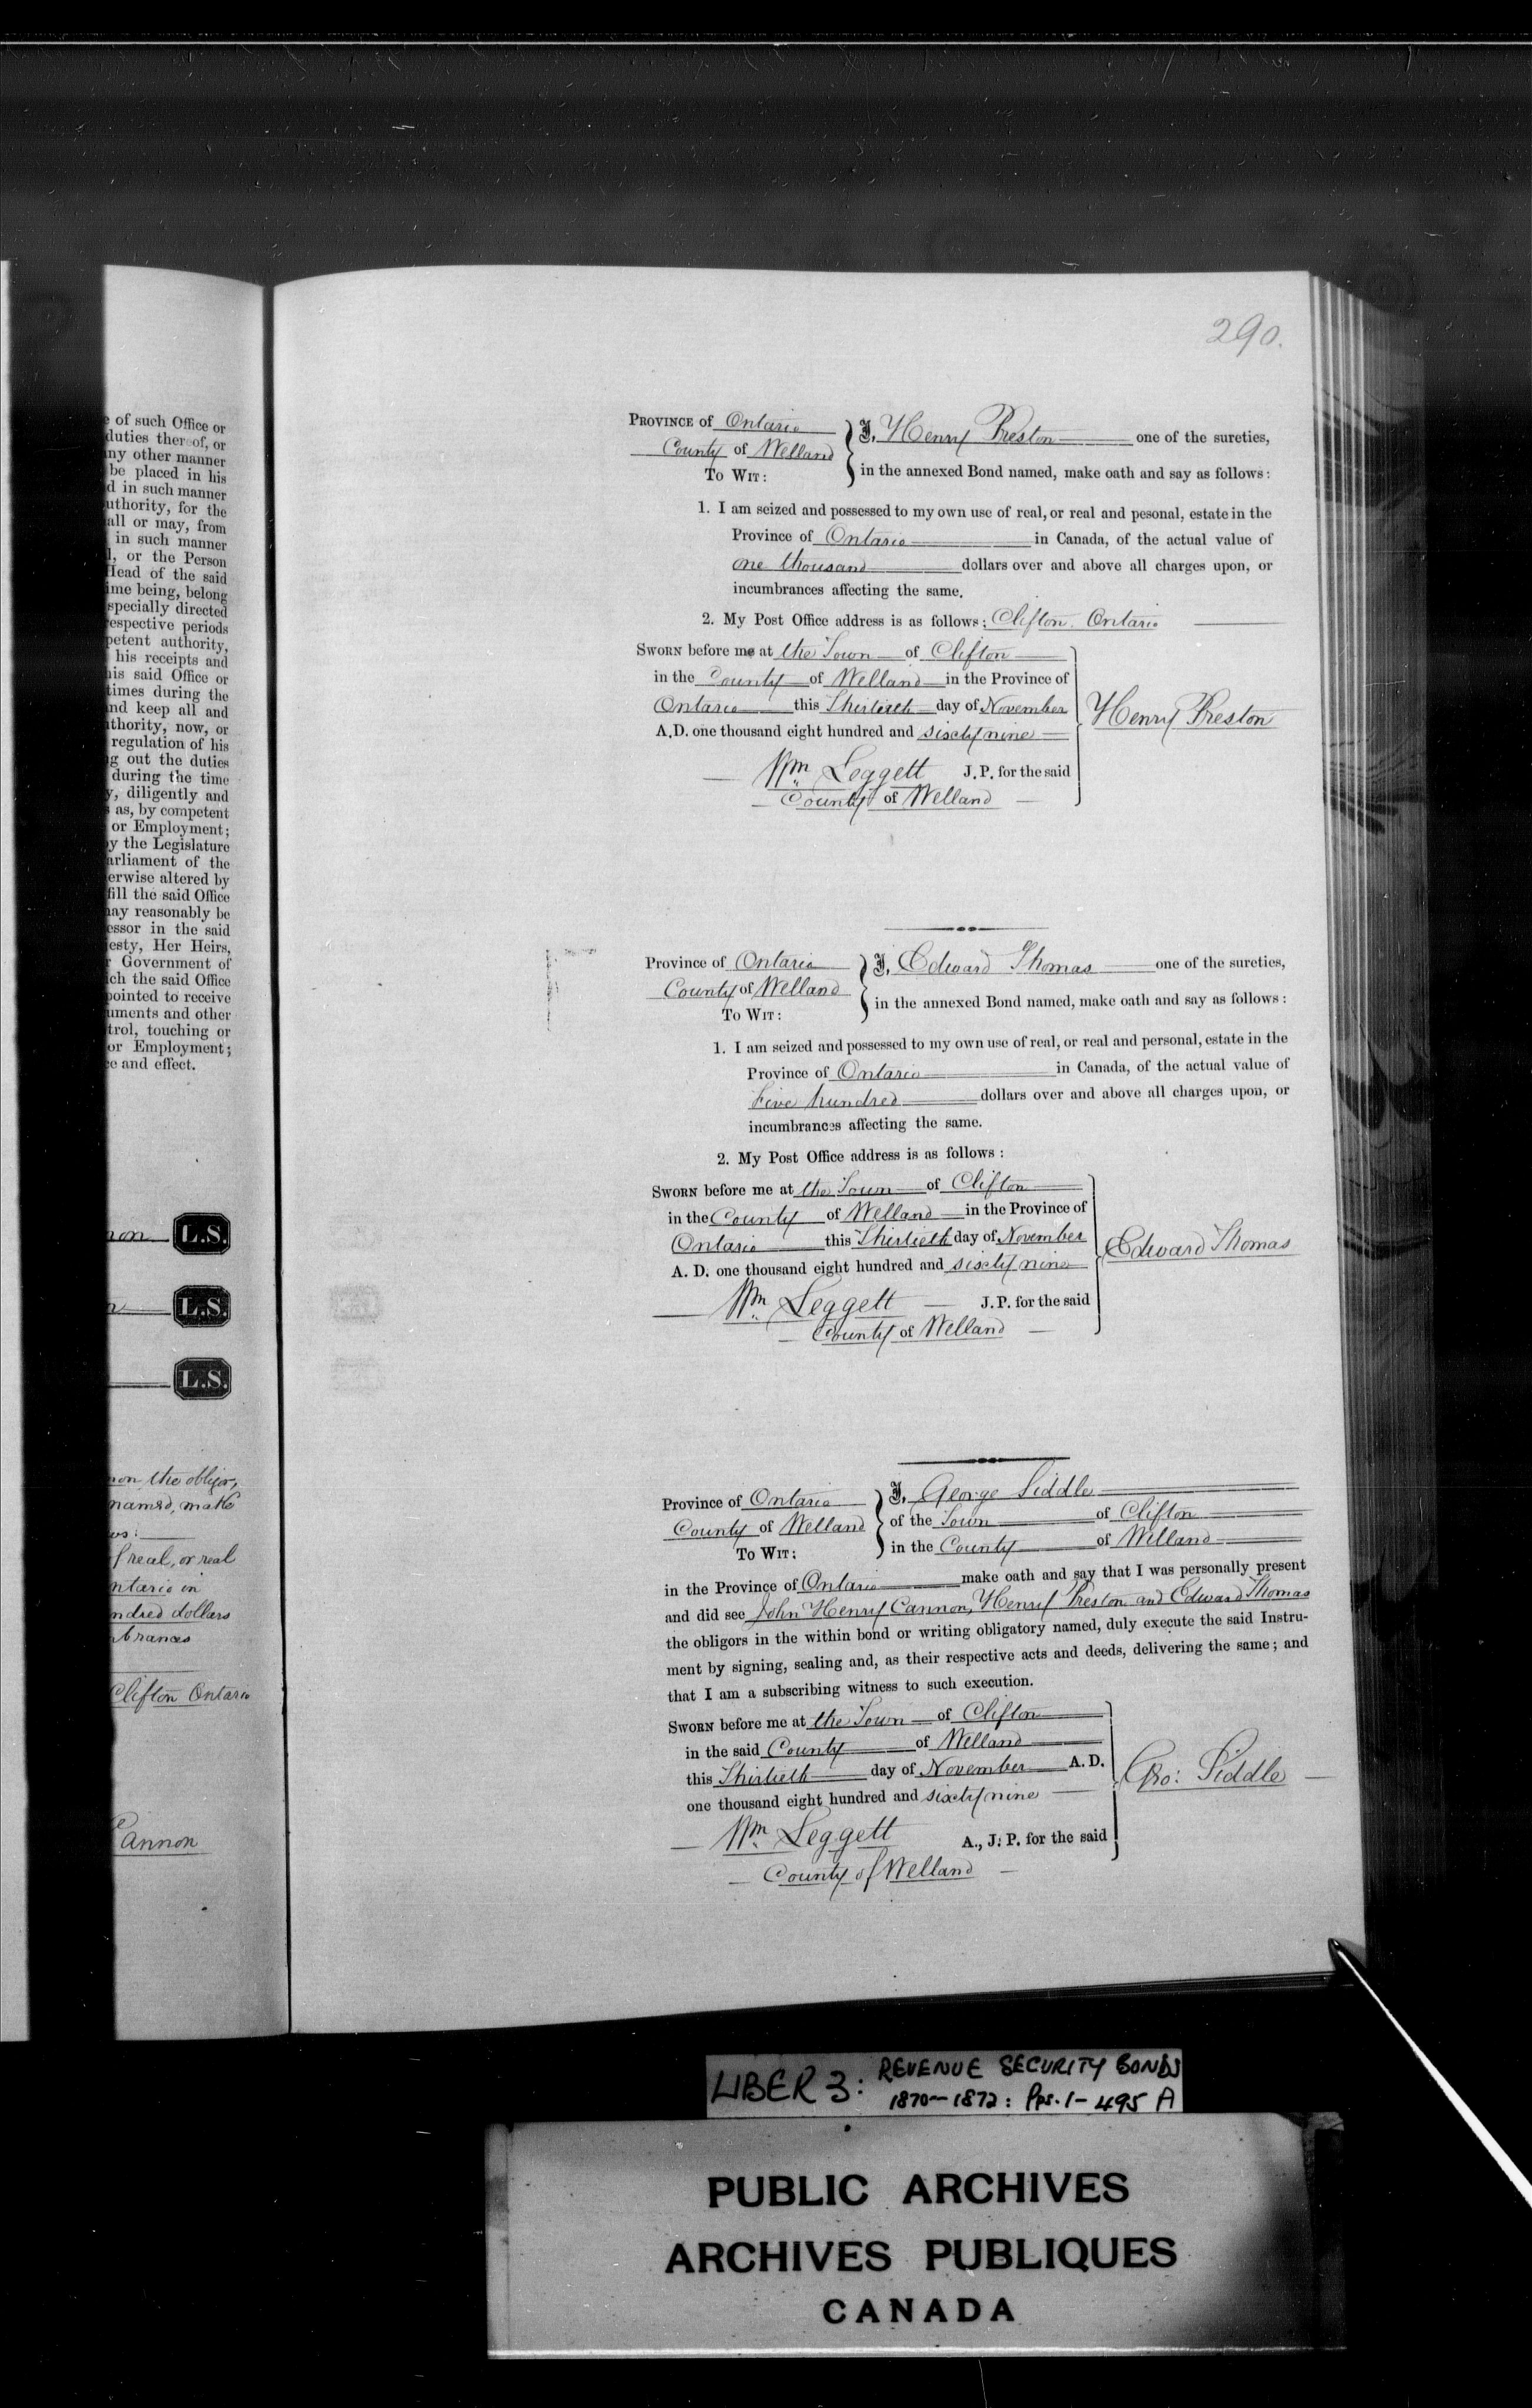 of such Office or
duties thereof, or
any other manner
be placed in his
d in such manner
authority, for the
all or may, from
in such manner
, or the Person
Head of the said
time being, belong
specially directed
respective periods
petent authority,
his receipts and
his said Office or
times during the
and keep all and
athority, now, or
regulation of his
g out the duties
during the time
y, diligently and
as, by competent
or Employment;
by the Legislature
arliament of the
erwise altered by
fill the said Office
may reasonably be
essor in the said
jesty, Her Heirs,
Government of
ich the said Office
pointed to receive
uments and other
trol, touching or
or Employment;
ce and effect.
non L.S.
L.S.
L.S.
non the obligor,
named, make
of real, or real
ntario in
ndred dollars
brances
Clifton Ontario
Cannon
290.
PROVINCE of Ontario
County of Welland
TO WIT:
I, Henry Preston one of the sureties,
in the annexed Bond named, make oath and say as follows:
1. I am seized and possessed to my own use of real, or real and pesonal, estate in the
Province of Ontario in Canada, of the actual value of
one thousand dollars over and above all charges upon, or
incumbrances affecting the same.
2. My Post Office address is as follows: Clifton. Ontario
SWORN before me at the Town of Clifton
in the County of Welland in the Province of
Ontario this Thirtieth day of November
A.D. one thousand eight hundred and sixty nine
Henry Preston
Wm Leggett J.P. for the said
County of Welland
Province of Ontario
County of Welland
TO WIT:
I, Edward Thomas one of the sureties,
in the annexed Bond named, make oath and say as follows:
1. I am seized and possessed to my own use of real, or real and personal, estate in the
Province of Ontario in Canada, of the actual value of
Five hundred dollars over and above all charges upon, or
incumbrances affecting the same.
2. My Post Office address is as follows:
SWORN before me at the Town of Clifton
in the County of Welland in the Province of
Ontario this Thirtieth day of November
A. D. one thousand eight hundred and sixty nine
Edward Thomas
Wm Leggett J.P. for the said
County of Welland
Province of Ontario
County of Welland
TO WIT:
I, George Siddle
of the Town of Clifton
in the County of Welland
in the Province of Ontario make oath and say that I was personally present
and did see John Henry Cannon, Henry Preston and Edward Thomas
the obligors in the within bond or writing obligatory named, duly execute the said Instru-
ment by signing, sealing and, as their respective acts and deeds, delivering the same; and
that I am a subscribing witness to such execution.
SWORN before me at the Town of Clifton
in the said County of Welland
this Thirtieth day of November A.D.
one thousand eight hundred and sixty nine
Geo: Siddle
Wm Leggett A., J. P. for the said
County of Welland
LIBER 3: REVENUE SECURITY BONDS
1870-1872: Pps. 1-495 A
PUBLIC ARCHIVES
ARCHIVES PUBLIQUES
CANADA